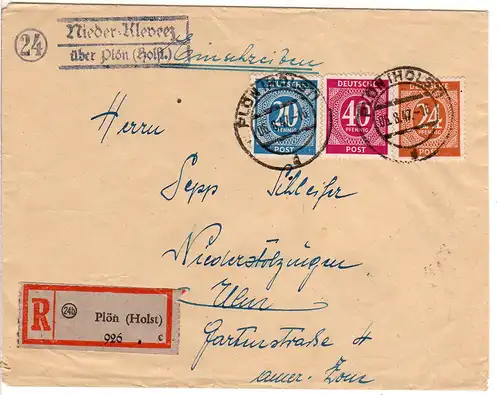 24
Nieder-Kleveez
über Plön (Holst.)
Einschreiben
DEUTSCHE
20
PFENNIG
POST
DEUTSCHE
40
PFENNIG
POST
24
PFENNIG
POST
PLÖN (HOLST)
a
PLÖN (HOLST)
8.47
a
Herrn
Sepp Schleifer
Niederstotzingen
Ulm
Gartenstraße 4
amer. Zone
R
24b
Plön (Holst)
926 c